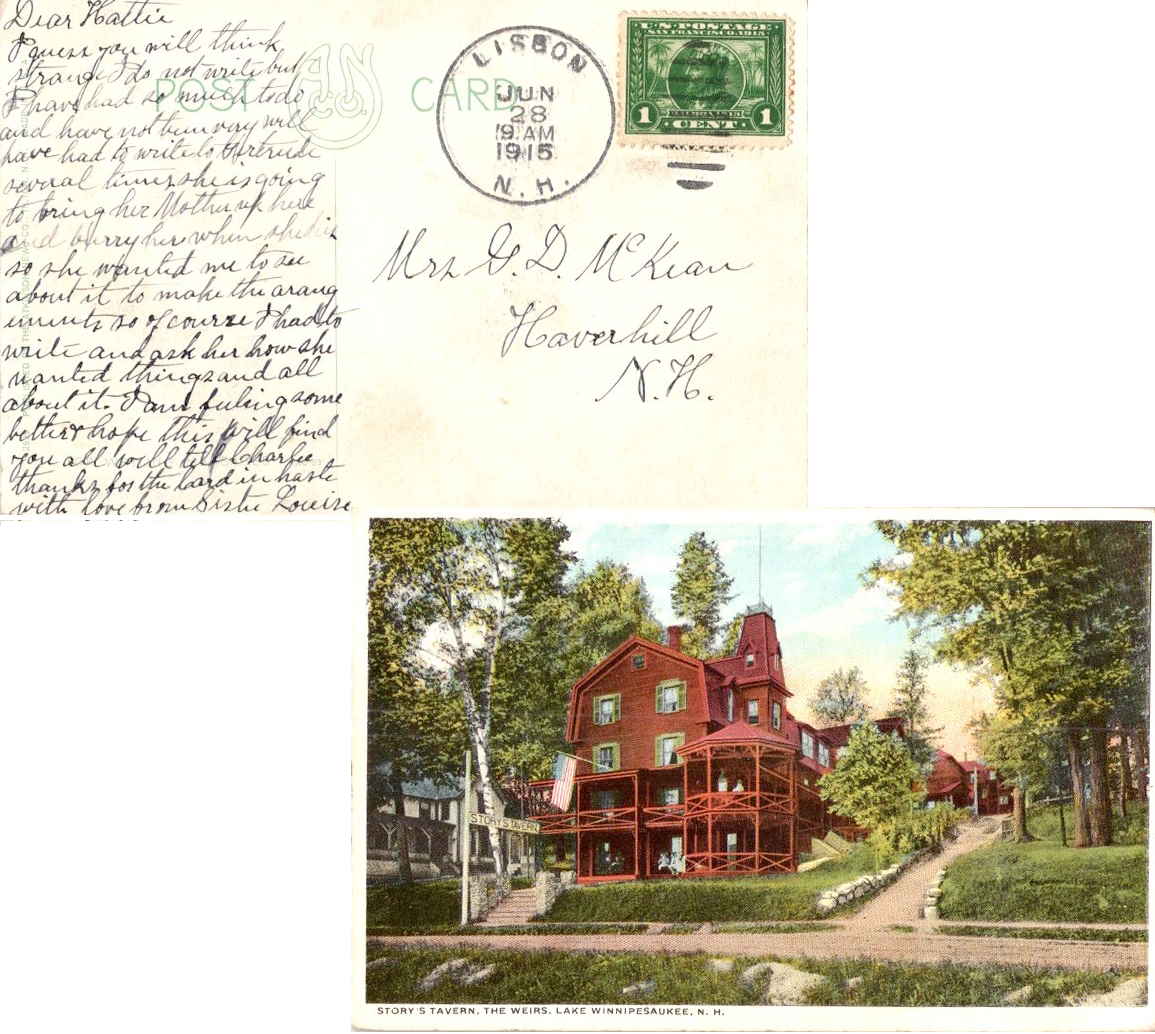 Dear Hattie
I guess you will think
strange I do not write but
I have had so much to do
and have not been very well
have had to write to Gertrude
several times she is going
to bring her Mother up here
and burry her when she dies
so she wanted me to see
about it to make the arang
ements so of course I had to
write and ask her how she
wanted things and all
about it. I am feeling some
better & hope this will find
you all well tell Charlie
thanks for the card in haste
with love from Sister Louise
POST CARD
AN
Co.
LISBON
JUN
28
9 AM
1915
N. H.
U.S. POSTAGE
SAN FRANCISCO 1915
1 CENT 1
Mrs G. D. McKean
Haverhill
N.H.
STORY'S TAVERN
STORY'S TAVERN, THE WEIRS, LAKE WINNIPESAUKEE, N. H.